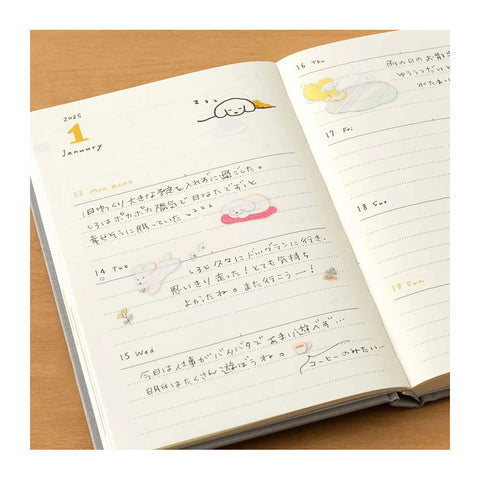 2025
1
January
zzz
13 Mon 成人の日
1日ゆっくり、大きな予定を入れずに過ごした。
しろはポカポカ陽気で日なたですっと
幸せそうに眠っていた zzzz
14 Tue
しろと久々にドッグランに行き、
思いきり走った！とても気持ち
よかったね。また行こうー！
15 Wed
今日は仕事がバタバタであまり遊べず…
明日はたくさん遊ぼうね。
コーヒーのみたい…
16 Thu
雨の日のお散
ゆううつだけど
17 Fri
18 Sat
19 Sun